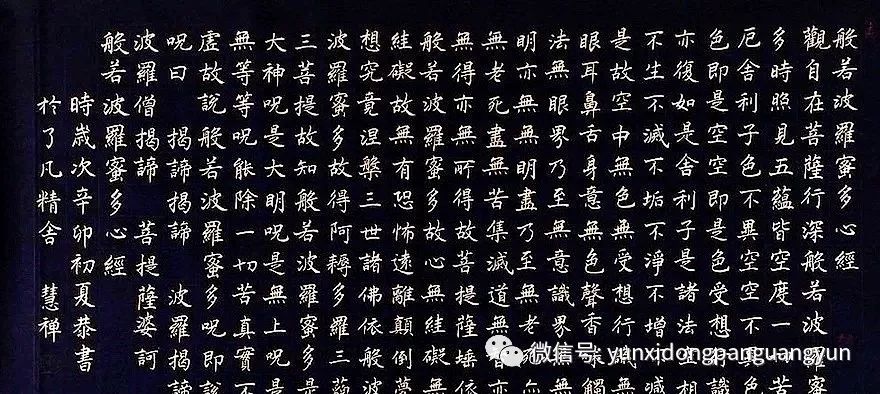 般若波羅蜜多心經
觀自在菩薩行深般若波羅蜜
多時照見五蘊皆空度一苦
厄舍利子色不異空空不異色
色即是空空即是色受想識
亦復如是舍利子是諸法空相
不生不滅不垢不淨不增不減
是故空中無色無受想行無
眼耳鼻舌身意無色聲香觸
法無眼界乃至無意識界無無
明亦無無明盡乃至無老亦
無老死盡無苦集滅道無亦
無得亦無所得故菩提薩埵依
般若波羅蜜多故心無絓礙無
絓礙故無有恐怖遠離顛倒夢
想究竟涅槃三世諸佛依般波
波羅蜜多故得阿耨多羅三藐
三菩提故知般若波羅蜜多是
大神呪是大明呪是無上呪是
無等等呪能除一切苦真實不
虛故說般若波羅蜜多呪即說
呪曰 揭諦揭諦 波羅揭諦
波羅僧揭諦 菩提薩婆訶
般若波羅蜜多心經
時歲次辛卯初夏恭書
於了凡精舍 慧禅
微信号: yunxidongpanguangyun